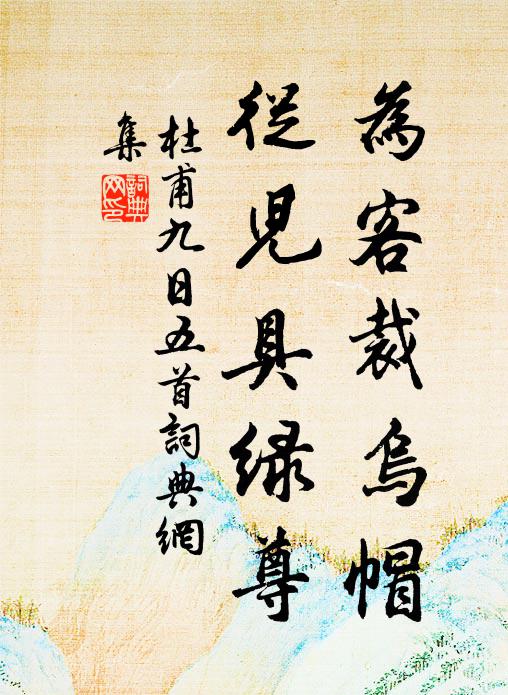 為客裁烏帽
從児具緑尊
杜甫九日五首詞典網
集
詞典
网印